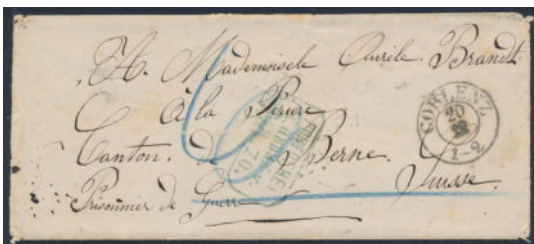 A. Mademoiselle Aurèle Brandt
à la Perière
Canton. de Berne.
Suisse.
Prisonnier de Guerre
COBLENZ
20
1-2